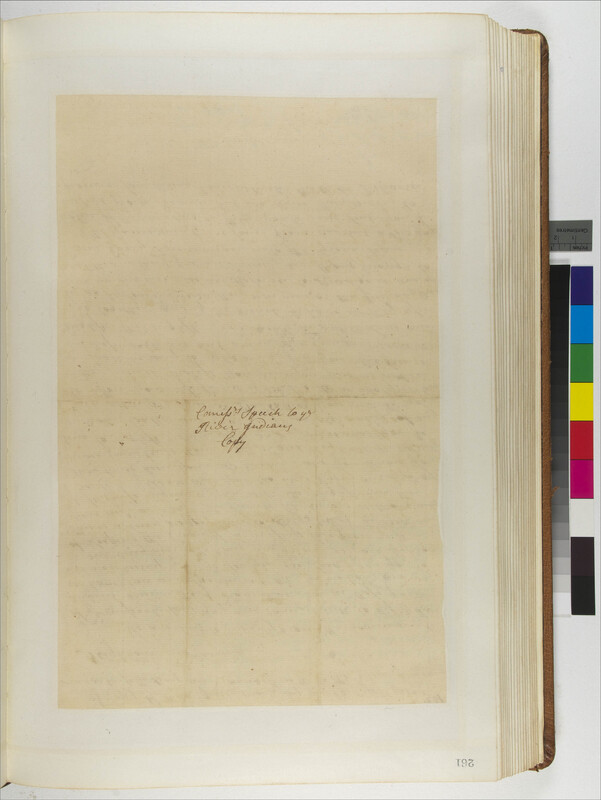 Comiss.rs Speech to ye
River Indians
Copy
261